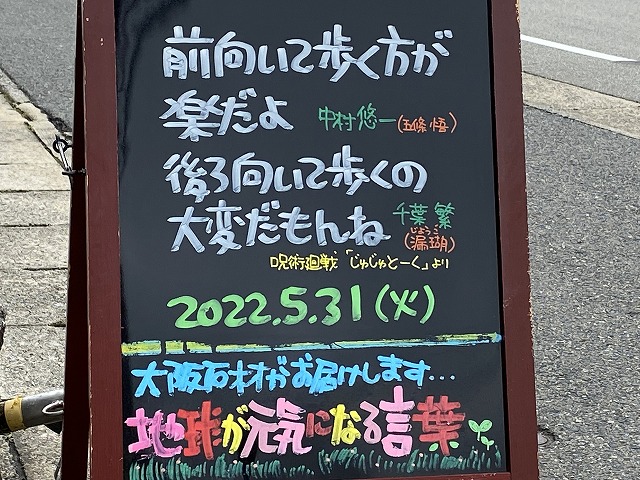 前向いて歩く方が
楽だよ 中村悠一(五條 悟)
後ろ向いて歩くの
大変だもんね 千葉 繁
じょうご
(漏瑚)
呪術廻戦「じゅじゅとーく」より
2022.5.31(火)
大阪石材がお届けします...
地球が元気になる言葉